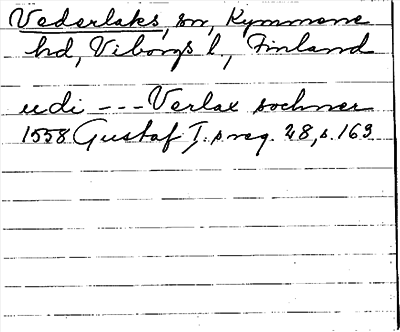 Vederlaks, sn, Kymmene
hd, Viborgs l., Finland
udi --- Verlax sochner
1558 Gustaf I:s reg. 28, s. 163